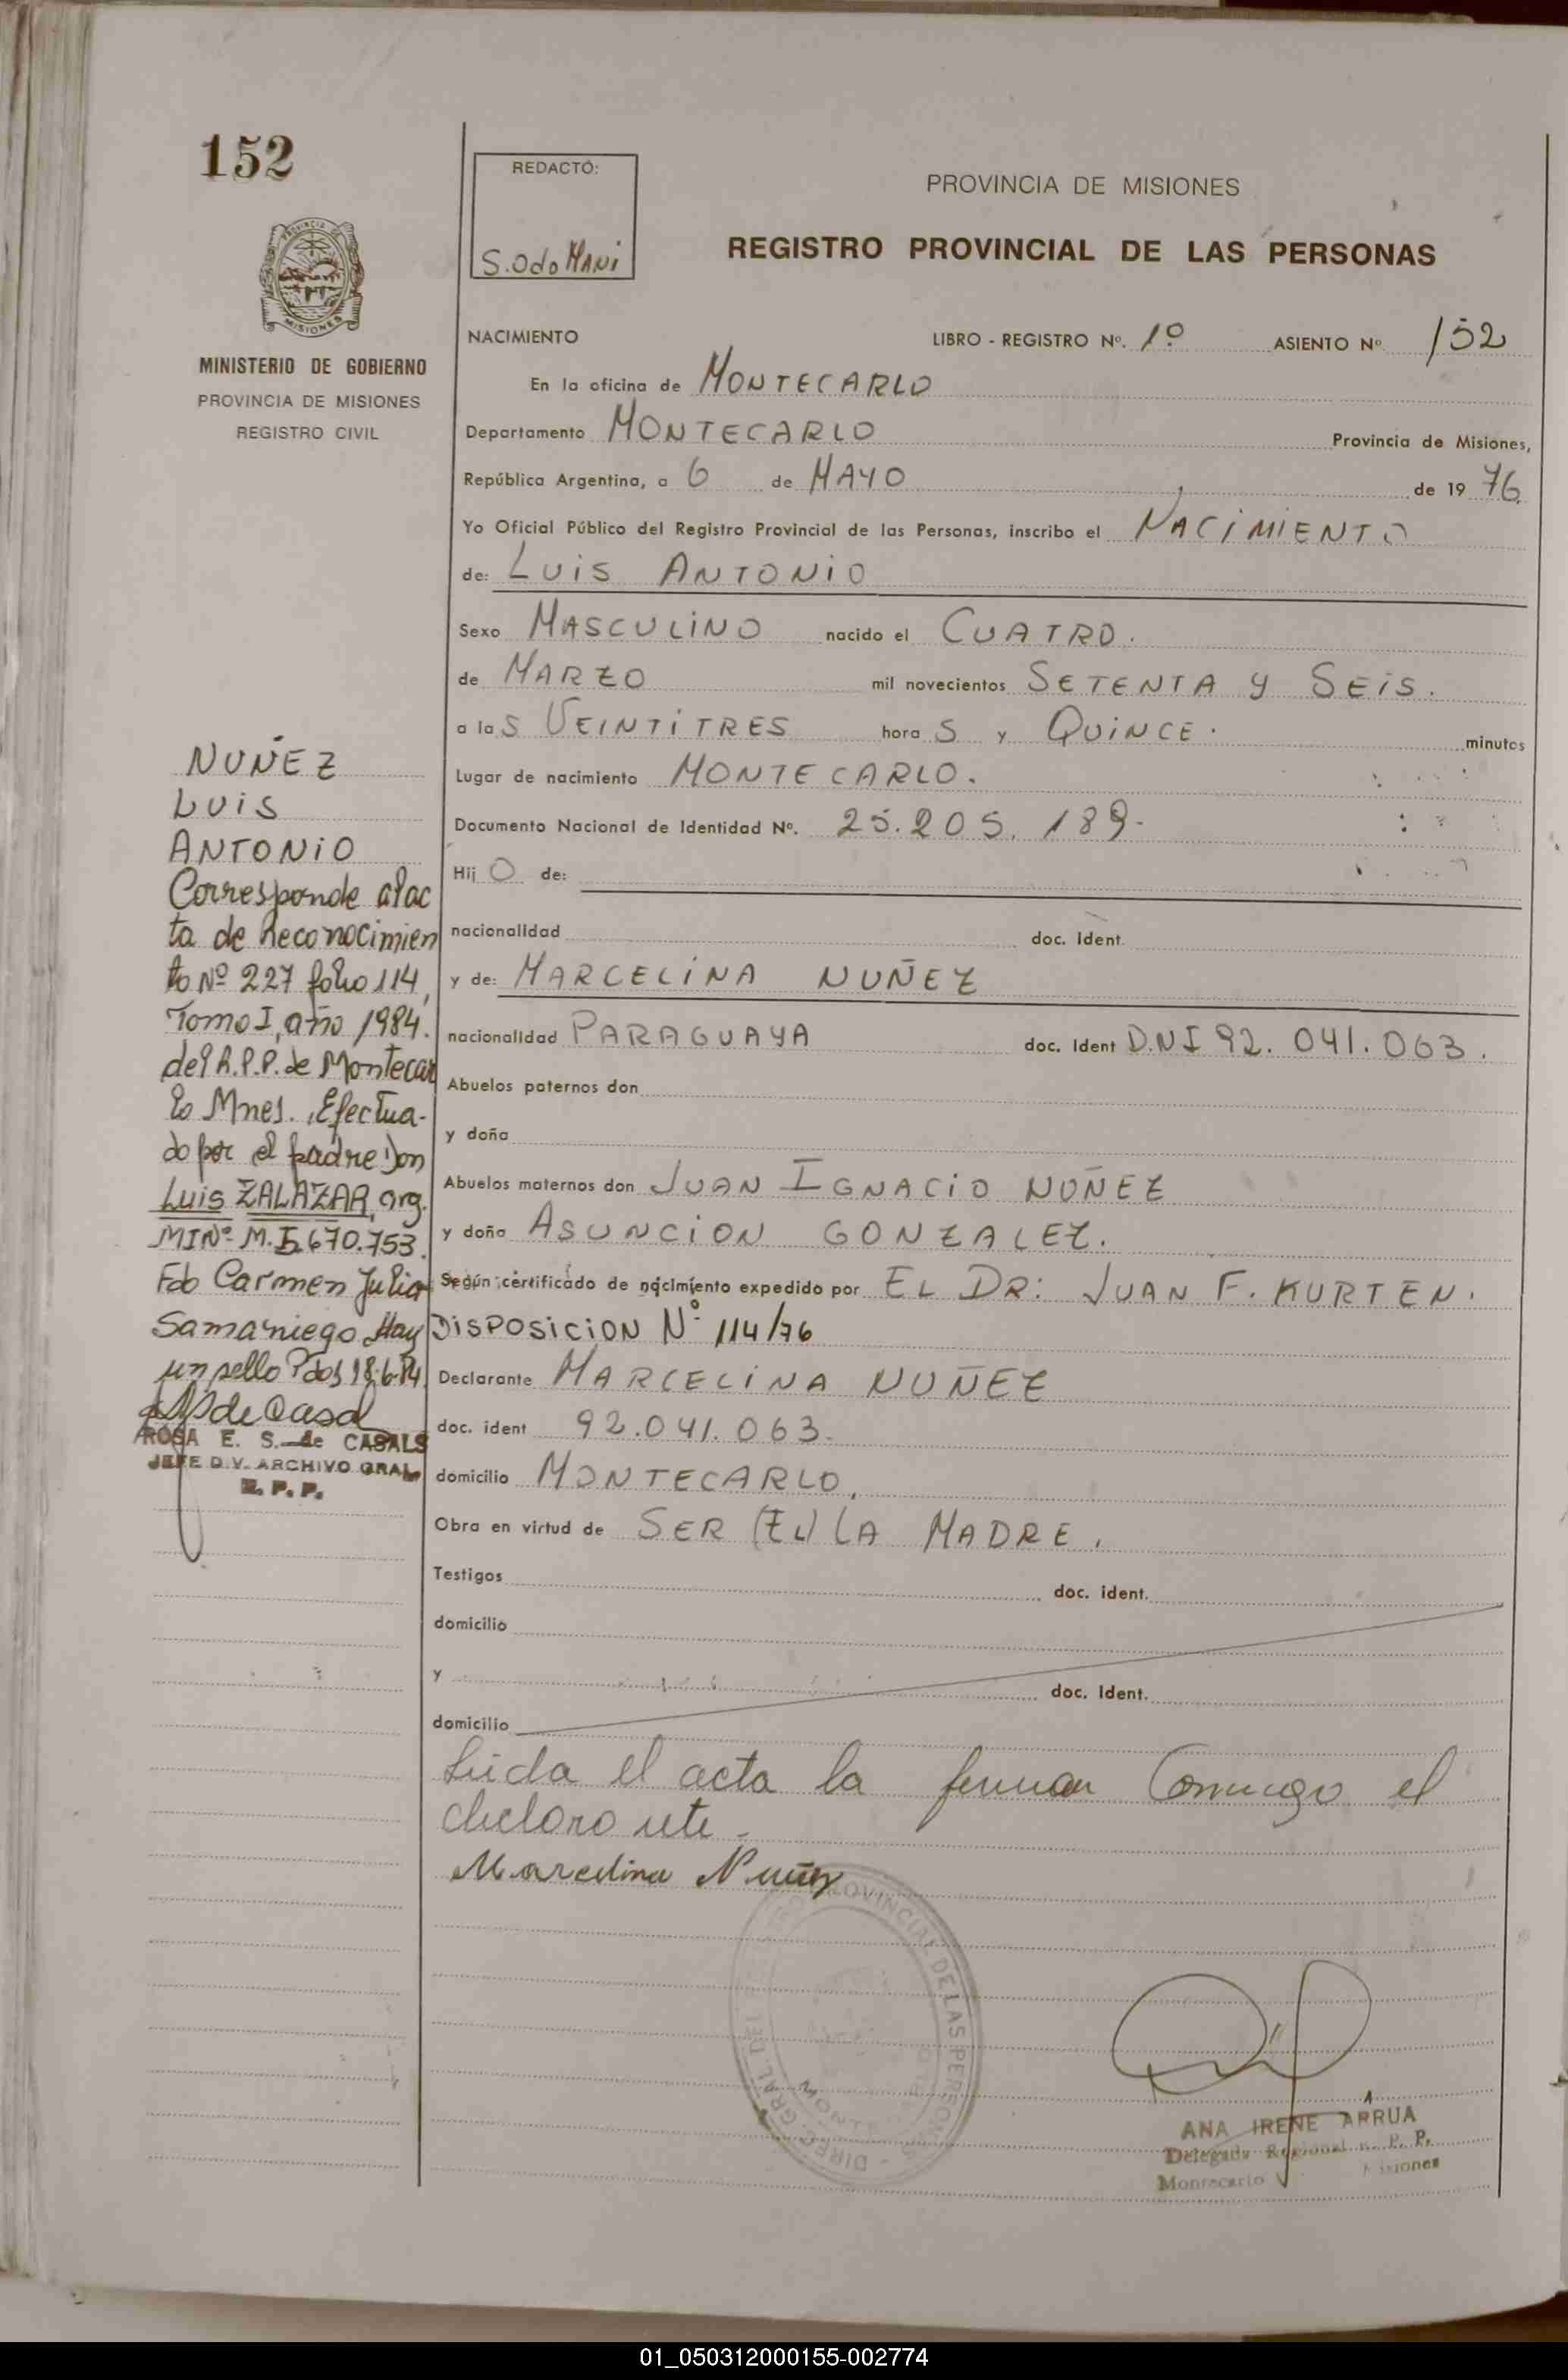 152
REDACTÓ:
S. Odo MANi
PROVINCIA DE MISIONES
REGISTRO PROVINCIAL DE LAS PERSONAS
MISIONES
MINISTERIO DE GOBIERNO
PROVINCIA DE MISIONES
REGISTRO CIVIL
NACIMIENTO LIBRO - REGISTRO Nº. 1º ASIENTO Nº 152
En la oficina de MONTECARLO
Departamento MONTECARLO Provincia de Misiones,
República Argentina, a 6 de MAYO de 19 76
Yo Oficial Público del Registro Provincial de las Personas, inscribo el NACiMIENTO
de: LUiS ANTONiO
Sexo MASCULiNO nacido el CUATRO.
de MARZO mil novecientos SETENTA y SEiS.
a las VEINTiTRES horas y QUiNCE. minutos
Lugar de nacimiento MONTECARLO.
Documento Nacional de Identidad Nº. 25.205.189-
Hijo de:
nacionalidad doc. Ident.
y de: MARCELiNA NUÑEZ
nacionalidad PARAGUAYA doc. Ident D.N.I 92.041.063.
Abuelos paternos don
y doña
Abuelos maternos don JUAN IGNACiO NUÑEZ
y doña ASUNCiON GONZALEZ.
Según certificado de nacimiento expedido por EL DR: JUAN F. KURTEN.
DiSPOSiCiON Nº 114/76
Declarante MARCELiNA NUÑEZ
doc. ident 92.041.063.
domicilio MONTECARLO.
Obra en virtud de SER (EL) LA MADRE.
Testigos doc. ident.
domicilio
y doc. Ident.
domicilio
Leida el acta la firman Conmigo el
Marcelina Nuñez
DIREC. GRAL. DEL REGISTRO PROVINCIAL DE LAS PERSONAS
ANA IRENE ARRUA
Delegada Regional R. P. P.
Montecarlo Misiones
NUÑEZ
LUiS
ANTONiO
Corresponde al ac
ta de Reconocimien
to Nº 227 folio 114,
Tomo I, año 1984.
del R.P.P. de Montecar
lo Mnes. Efectua-
do por el padre Don
Luis ZALAZAR, arg.
MINº M. 5.670.753.
Fdo Carmen Julia
Samaniego Hay
un sello Pdas 18-6-84
ROSA E. S. de CASALS
JEFE DIV. ARCHIVO GRAL
R. P. P.
01_050312000155-002774